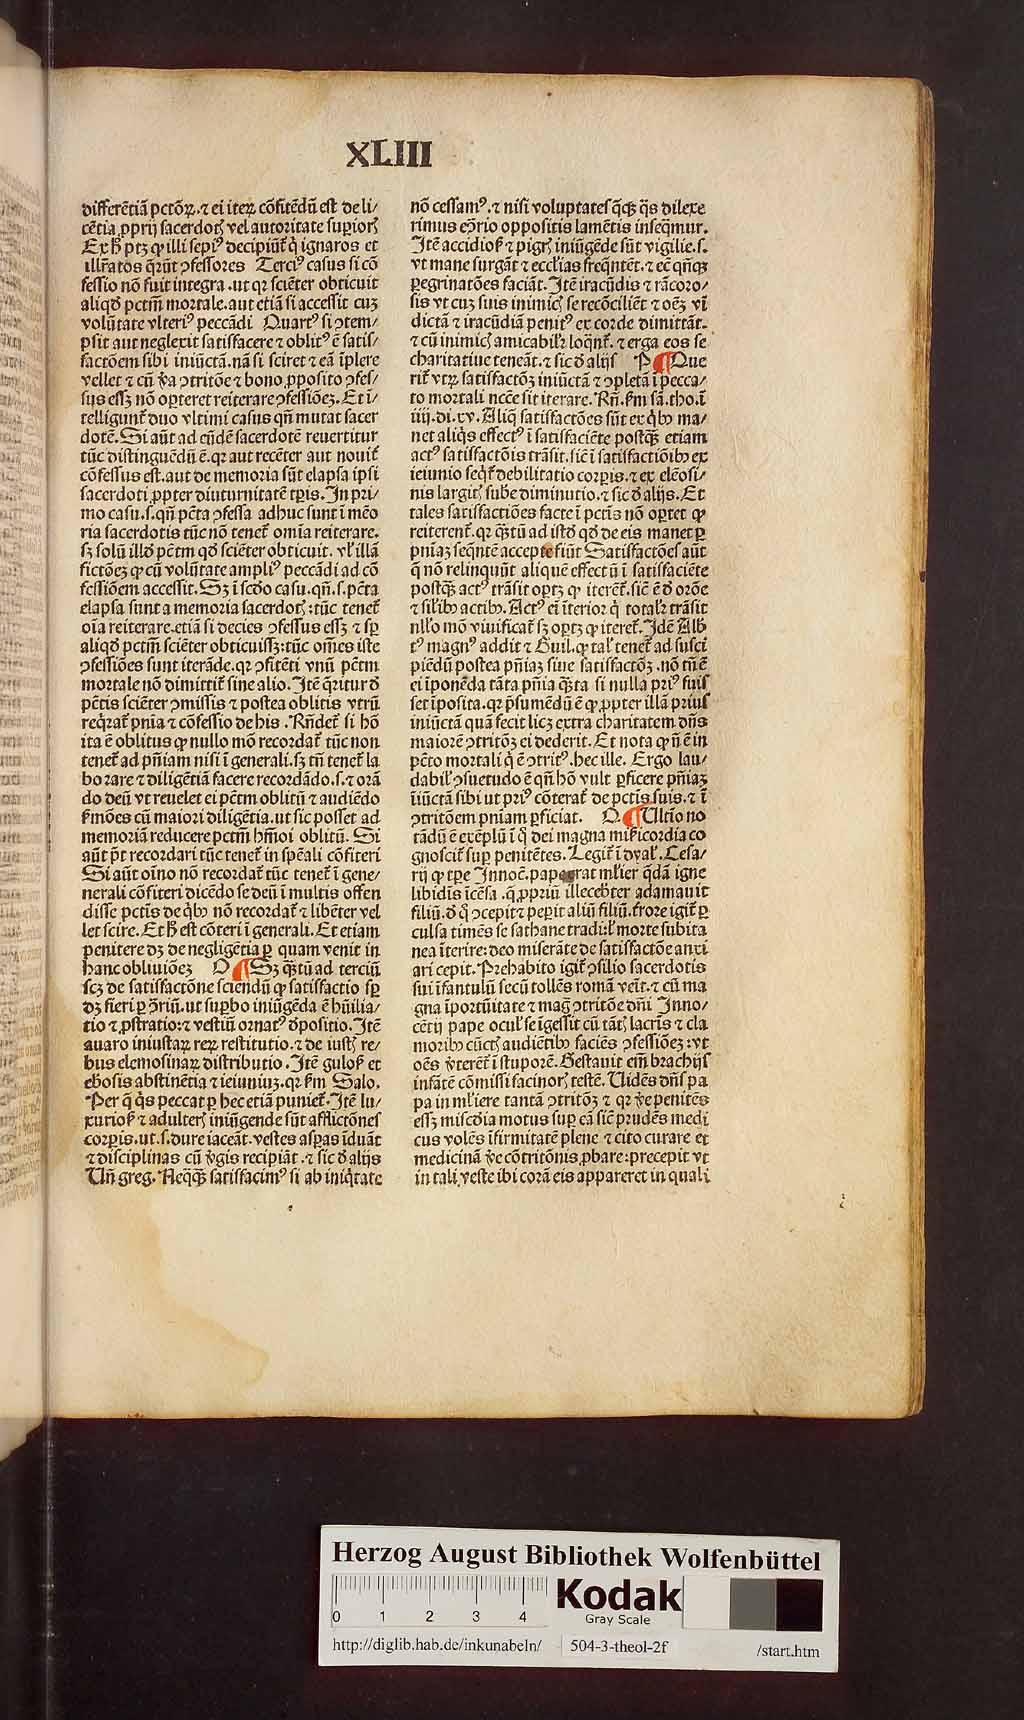 XLIII
differētiā pctōꝝ.⁊ ei iteꝝ cōfitēdū est de li/
cētia ꝓprij sacerdotꝭ vel autoritate superiorꝭ
Ex hͦ ptꝫ ꝙ illi sepiꝰ decipiūt̄ q̇ ignaros et
illr̄atos q̄rūt ꝯfessores Terciꝰ casus si cō
fessio nō fuit integra.ut qꝛ sciēter obticuit
aliqd̄ pctm̄ mortale.aut etiā si accessit cuꝫ
volūtate vlteriꝰ peccādi Quartꝰ si ꝯtem/
psit aut neglexit satisfacere ⁊ oblitꝰ ē satis/
factōem sibi iniūctā.nā si sciret ⁊ eā īplere
vellet ⁊ cū v̄a ꝯtritōe ⁊ bono ꝓposito ꝯfes/
sus essꝫ nō oꝑteret reiterare ꝯfessiōeꝫ. Et ī/
telligunt̄ duo vltimi casus qn̄ mutat sacer
dotē.Si aūt ad eūdē sacerdotē reuertitur
tūc distinguēdū ē.qꝛ aut recēter aut nouit̄
cōfessus est.aut de memoria sūt elapsa ipsi
sacerdoti ꝓpter diuturnitatē tꝑis.In pri/
mo casu.s.qn̄ pctā ꝯfessa adhuc sunt ī mēo
ria sacerdotis tūc nō tenet̄ omīa reiterare.
sꝫ solū illd̄ pctm̄ qd̄ sciēter obticuit. vl' illā
fictōeꝫ ꝙ cū volūtate ampliꝰ peccādi ad cō
fessiōem accessit.Sꝫ ī scd̄o casu.qn̄.s.pctā
elapsa sunt a memoria sacerdotꝭ:tūc tenet̄
oīa reiterare.etiā si decies ꝯfessus essꝫ ⁊ sꝑ
aliqd̄ pctm̄ sciēter obticuissꝫ:tūc om̄es iste
ꝯfessiōes sunt iterāde.qꝛ ꝯfitēti vnū pctm̄
mortale nō dimittit̄ sine alio.Itē q̄ritur d̄
pctīs sciēter ꝯmissis ⁊ postea oblitis vtrū
reqͥrat̄ pn̄ia ⁊ cōfessio de his.Rn̄det̄ si hō
ita ē oblitus ꝙ nullo mō recordat̄ tūc non
tenet̄ ad pn̄iam nisi ī generali.sꝫ tn̄ tenet̄ la
borare ⁊ diligētiā facere recordādo.s.⁊ orā
do deū vt reuelet ei pctm̄ oblitū ⁊ audiēdo
ẜmōes cū maiori diligētia.ut sic posset ad
memoriā reducere pctm̄ hm̄oi oblitū. Si
aūt pt̄ recordari tūc tenet̄ in sp̄eali cōfiteri
Si aūt oīno nō recordat̄ tūc tenet̄ ī gene/
nerali cōfiteri dicēdo se deū ī multis offen
disse pctīs de qͥbꝰ nō recordat̄ ⁊ libēter vel
let scire.Et hͦ est cōteri ī generali.Et etiam
penitere dꝫ de negligētia ꝑ quam venit in
hanc obliuiōeꝫ O ¶ Sꝫ qꝫtū ad terciū
scꝫ de satisfactōne sciendū ꝙ satisfactio sꝑ
dꝫ fieri ꝑ ꝯriū.ut suꝑbo iniūgēda ē hūilia/
tio ⁊ ꝓstratio:⁊ vestiū ornatꝰ d̄positio.Itē
auaro iniustaꝝ reꝝ restitutio.⁊ de iustꝭ re/
bus elemosinaꝝ distributio.Itē gulosꝭ et
ebriosis abstinētia ⁊ ieiuniuꝫ.qꝛ ẜm Salo.
Per q̄ qͥs peccat ꝑ hec etiā puniet̄.Itē lu/
xuriosꝭ ⁊ adulterꝭ iniūgende sūt afflictōnes
corꝑis.ut.s.dure iaceāt.vestes asꝑas īduāt
⁊ disciplinas cū v̄gis recipiāt.⁊ sic d̄ alijs
Un̄ greg. Neqꝫ satisfacimꝰ si ab iniqͥtate
nō cessamꝰ.⁊ nisi voluptates qͣsqꝫ qͣs dilexe
rimus eꝯrio oppositis lamētis inseqͣmur.
Itē accidiosꝭ ⁊ pigrꝭ iniūgēde sūt vigilie.s.
vt mane surgāt ⁊ eccl'ias freqn̄tēt.⁊ ec̄ qn̄qꝫ
ꝑegrinatōes faciāt.Itē iracūdis ⁊ rācoro/
sis vt cuꝫ suis inimicꝭ se recōciliēt ⁊ oēꝫ vī
dictā ⁊ iracūdiā penitꝰ ex corde dimittāt.
⁊ cū inimicꝭ amicabil'r loqn̄t̄. ⁊ erga eos se
charitatiue teneāt.⁊ sic d̄ alijs P ¶ Que
rit̄ vtꝝ satisfactōꝫ iniūctā ⁊ ꝯpletā ī pecca/
to mortali nc̄ce sit iterare.Rn̄.ẜm sā.tho.ī
iiij.di.xv.Aliq̄ satisfactōes sūt ex qͥbꝰ ma/
net aliqͥs effectꝰ ī satisfaciēte postqͣꝫ etiam
actꝰ satisfactōis trāsit.sic̄ ī satisfactiōibꝰ ex
ieiunio seqͥt̄ debilitatio corꝑis.⁊ ex elēosi/
nis largitꝭ sub̄e diminutio.⁊ sic d̄ alijs.Et
tales satisfactiōes facte ī pctīs nō oꝑtet ꝙ
reiterent̄.qꝛ qͣꝫtū ad istd̄ qd̄ de eis manet ꝑ
pn̄iaꝫ seqn̄tē accepte fiūt Satisfactōes aūt
q̄ nō relinquūt aliquē effectū ī satisfaciēte
postqͣꝫ actꝰ trāsit oꝑtꝫ ꝙ iteret̄.sic̄ ē d̄ orōe
⁊ sil'ibꝰ actibꝰ. Actꝰ ei īterior q̇ total'r trāsit
nllo mō viuificat̄ sꝫ oꝑtꝫ ꝙ iteret̄.Idē Alb̄
tꝰ magnꝰ addit ⁊ Guil.ꝙ tal' tenet̄ ad susci
piēdū postea pn̄iaꝫ siue satisfactōꝫ.nō tn̄ ē
ei īponēda tāta pn̄ia qͣꝫta si nulla priꝰ fuis
set īposita.qꝛ p̄sumēdū ē ꝙ ꝓpter illā prius
iniūctā quā fecit licꝫ extra charitatem dn̄s
maiorē ꝯtritōꝫ ei dederit.Et nota ꝙ n̄ ē in
pctō mortali q̇ ē ꝯtritꝰ.hec ille. Ergo lau/
dabil' ꝯsuetudo ē qn̄ hō vult ꝑficere pn̄iaꝫ
īiūctā sibi ut priꝰ cōterat̄ de pctīs suis.⁊ ī
ꝯtritōem pniam ꝑficiat. Q ¶ Ultīo no
tādū ē exēplū ī q̇ dei magna mīẜicordia co
gnoscit̄ suꝑ penitētes. Legit̄ ī dyal'.Cesa/
rij ꝙ tꝑe Innoc̄.pape erat ml'ier qͣdā igne
libidīs īcēsa.q̄ ꝓpriū illecebrꝭter adamauit
filiū.d̄ q̇ ꝯcepit ⁊ peꝑit aliū filiū.Uxore igit̄ ꝑ
culsa timēs se sathane tradi:l' morte subita
nea īterire:deo miserāte de satisfactōe anxi
ari cepit.Prehabito igit̄ ꝯsilio sacerdotis
sui īfantulū secū tollēs romā venit.⁊ cū ma
gna īportūitate ⁊ magͣ ꝯtritōe dn̄i Inno/
cētij pape ocul' se īgessit cū tātꝭ lacrīs ⁊ cla
moribꝰ cūctꝭ audiētibꝰ faciēs ꝯfessiōeꝫ:vt
oēs v̄terēt̄ ī stuporē.Gestauit em̄ brachijs
infātē cōmissi facinorꝭ testē. Uidēs dn̄s pa
pa in ml'iere tantā ꝯtritōꝫ ⁊ qꝛ v̄e penitēs
essꝫ misc̄dia motus suꝑ eā sic̄ prudēs medi
cus volēs īfirmitatē plene ⁊ cito curare et
medicinā v̄e cōtritōnis ꝓbare:precepit vt
in tali veste ibi corā eis appareret in quali
Herzog August Bibliothek Wolfenbüttel
0 1 2 3 4
Kodak
Gray Scale
http://diglib.hab.de/inkunabeln/ 504-3-theol-2f /start.htm